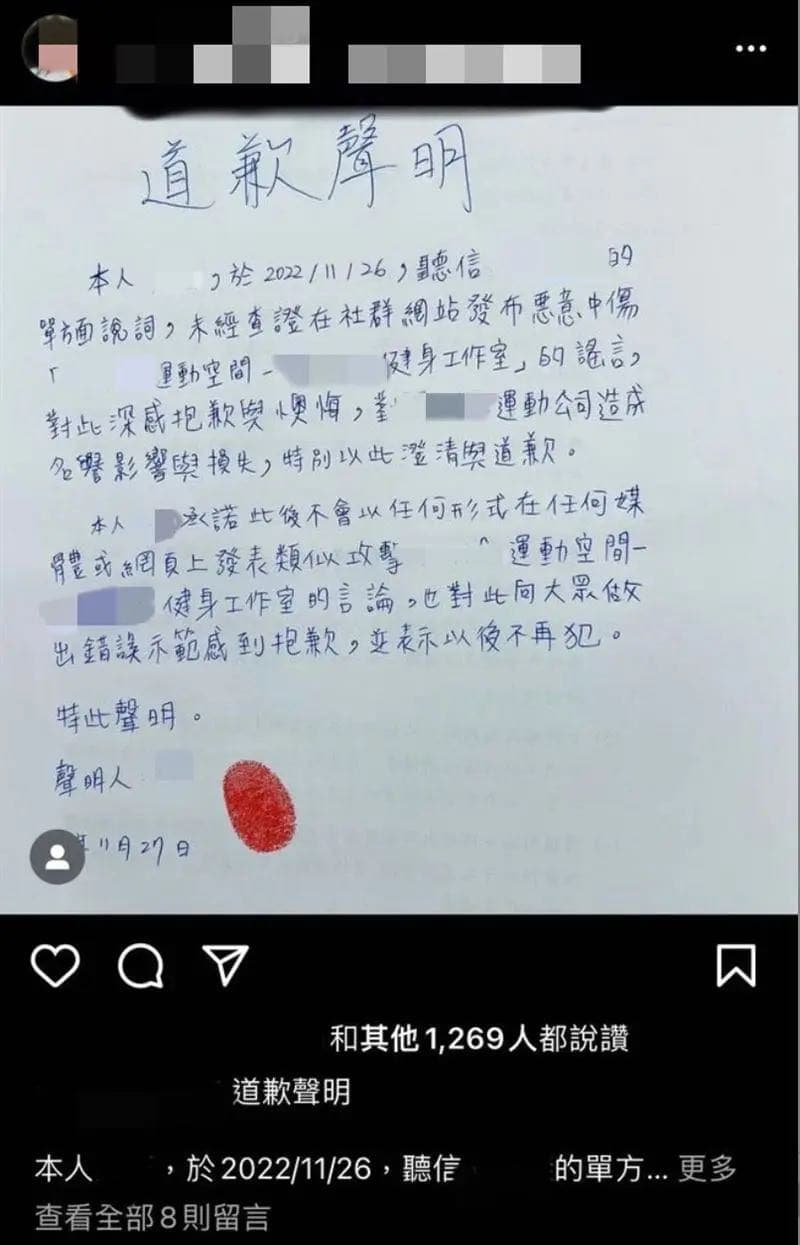 道歉聲明
本人 ,於2022/11/26,聽信 的
單方面說詞,未經查證在社群網站發布惡意中傷
「 運動空間- 健身工作室」的謠言,
對此深感抱歉與懊悔,對 運動公司造成
名譽影響與損失,特別以此澄清與道歉。
本人 承諾此後不會以任何形式在任何媒
體或網頁上發表類似攻擊 運動空間-
健身工作室的言論,也對此向大眾做
出錯誤示範感到抱歉,並表示以後不再犯。
特此聲明。
聲明人
年11月27日
和其他1,269人都說讚
道歉聲明
本人 ,於2022/11/26,聽信 的單方... 更多
查看全部8則留言